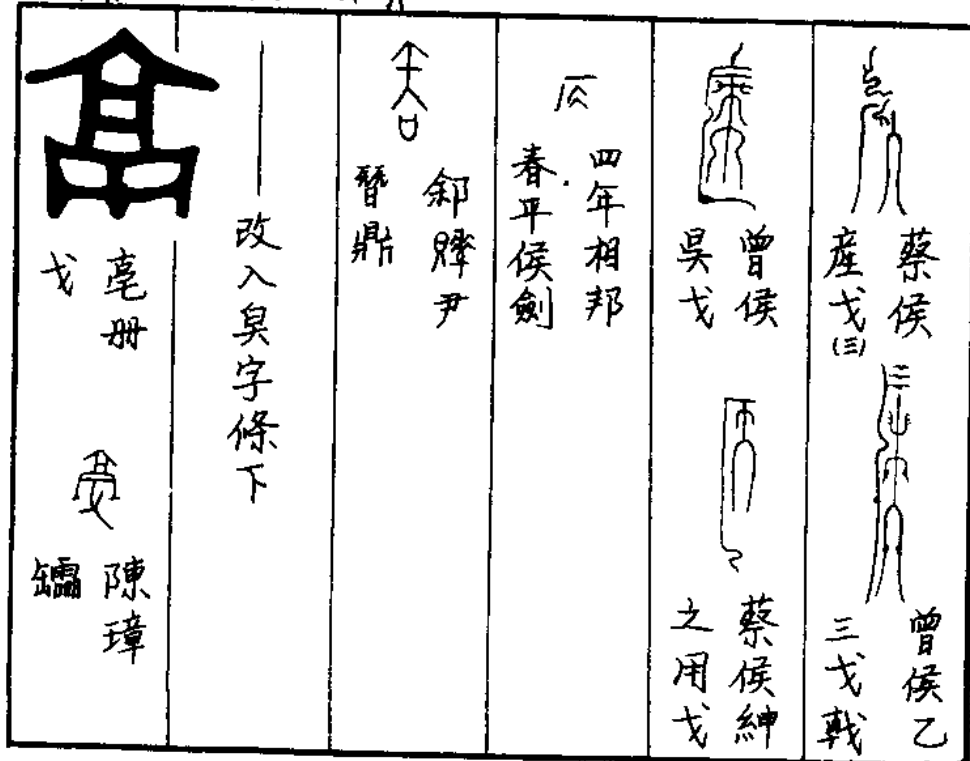 蔡侯
產戈(三)
曾侯乙
三戈戟
曾侯
吳戈
蔡侯紳
之用戈
四年相邦
春平侯劍
尹
朁鼎
改入臭字條下
亳册
戈
陳璋
鑐